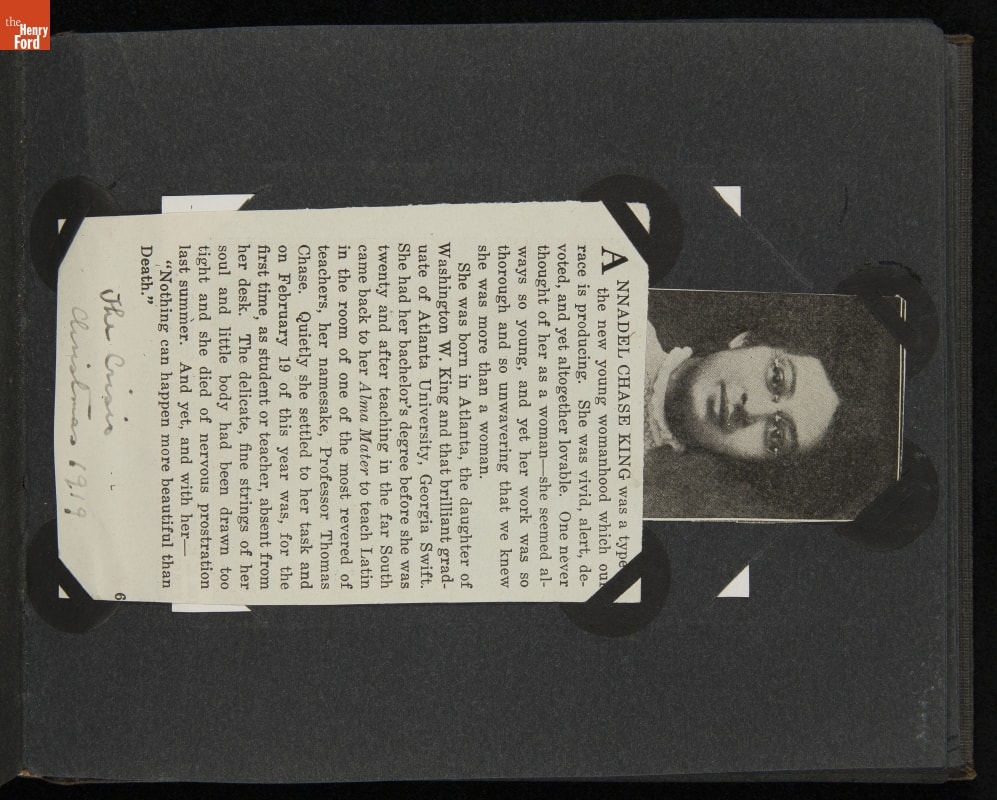 the
Henry
Ford
ANNADEL CHASE KING was a type
the new young womanhood which our
race is producing. She was vivid, alert, de-
voted, and yet altogether lovable. One never
thought of her as a woman—she seemed al-
ways so young, and yet her work was so
thorough and so unwavering that we knew
she was more than a woman.
She was born in Atlanta, the daughter of
Washington W. King and that brilliant grad-
uate of Atlanta University, Georgia Swift.
She had her bachelor's degree before she was
twenty and after teaching in the far South
came back to her Alma Mater to teach Latin
in the room of one of the most revered of
teachers, her namesake, Professor Thomas
Chase. Quietly she settled to her task and
on February 19 of this year was, for the
first time, as student or teacher, absent from
her desk. The delicate, fine strings of her
soul and little body had been drawn too
tight and she died of nervous prostration
last summer. And yet, and with her—
"Nothing can happen more beautiful than
Death."
6
The Crisis
Christmas 1919